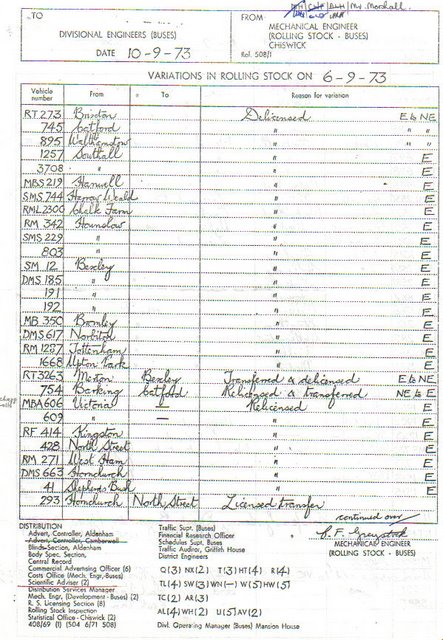 TO
DIVISIONAL ENGINEERS (BUSES)
DATE 10-9-73
FROM
Mr. Marshall.
MECHANICAL ENGINEER
(ROLLING STOCK - BUSES)
CHISWICK
Ref. 508/1
VARIATIONS IN ROLLING STOCK ON 6-9-73
Vehicle number From To Reason for variation
RT 273 Brixton Delicensed E to NE
745 Catford " " "
895 Walthamstow " " "
1257 Southall " E
3708 " " E
MBS 219 Hanwell " E
SMS 744 Harrow Weald " E
RML 2300 Chalk Farm " E
RM 342 Hounslow " E
SMS 229 " " E
803 " " E
SM 12 Bexley " E
DMS 185 " " E
191 " " E
192 " " E
MB 350 Bromley " E
DMS 617 Norbiton " E
RM 1287 Tottenham " E
1668 Upton Park " E
RT 3263 Merton Bexley Transferred & delicensed E to NE
754 Barking Catford Relicensed & transferred NE to E
MBA 606 Victoria — Relicensed E
609 " — " E
RF 414 Kingston " E
428 North Street " E
RM 271 West Ham " E
DMS 663 Hornchurch " E
41 Shepherds Bush " E
293 Hornchurch North Street Licensed transfer
continued over
DISTRIBUTION
Advert, Controller, Aldenham
Advert, Controller, Camberwell
Blinds Section, Aldenham
Body Spec. Section,
Central Record
Commercial Advertising Officer (6)
Costs Office (Mech. Engr. Buses)
Scientific Adviser (2)
Distribution Services Manager
Mech. Engr. (Development - Buses) (2)
R. S. Licensing Section (8)
Rolling Stock Inspection
Statistical Office - Chiswick (2)
408/69 (1) 504 6/71 508)
Traffic Supt. (Buses)
Financial Research Officer
Schedules Supt. Buses
Traffic Auditor, Griffith House
District Engineers
Q(3) NX(2) T(3) HT(4) R(4)
TL(4) SW(3) WN(—) W(5) HW(5)
TC(2) AR(3)
AL(4) WH(2) U(5) AV(2)
Divl. Operating Manager (Buses) Mansion House
MECHANICAL ENGINEER
(ROLLING STOCK - BUSES)